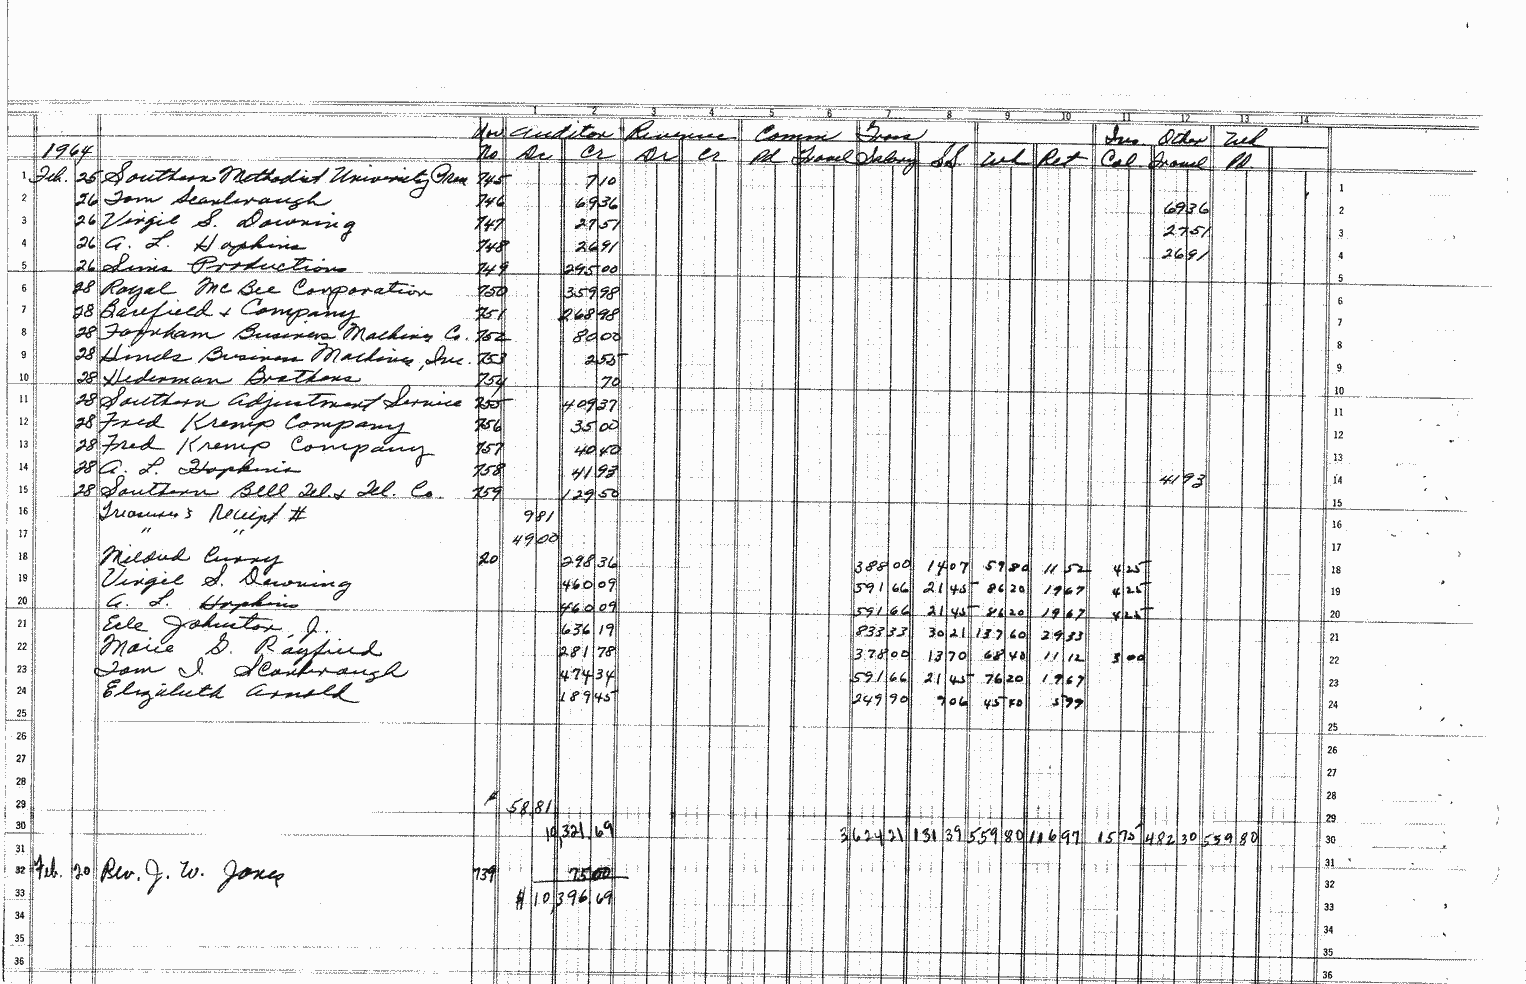 1 2 3 4 5 6 7 8 9 10 11 12 13 14
Vou Auditor Revenue Comm Gross Ins Other Wh
1964 No Dr Cr Dr Cr Pd Travel Salary SS Wh Ret Col Travel Pd
1 Feb. 25 Southern Methodist University Press 745 7 10 1
2 26 Tom Scarbrough 746 69 36 69 36 2
3 26 Virgil S. Downing 747 27 51 27 51 3
4 26 A. L. Hopkins 748 26 91 26 91 4
5 26 Sims Productions 749 295 00 5
6 28 Royal McBee Corporation 750 359 98 6
7 28 Barefield & Company 751 268 98 7
8 28 Farnham Business Machines Co. 752 80 00 8
9 28 Hinds Business Machines, Inc. 753 2 55 9
10 28 Hederman Brothers 754 70 10
11 28 Southern Adjustment Service 755 409 37 11
12 28 Fred Kremp Company 756 35 00 12
13 28 Fred Kremp Company 757 40 40 13
14 28 A. L. Hopkins 758 41 93 41 93 14
15 28 Southern Bell Tel. & Tel. Co. 759 129 50 15
16 Treasurer's Receipt # 9 81 16
17 " " 49 00 17
18 Mildred Curry 20 298 36 388 00 14 07 59 80 11 52 4 25 18
19 Virgil S. Downing 460 09 591 66 21 45 86 20 19 67 4 25 19
20 A. L. Hopkins 460 09 591 66 21 45 86 20 19 67 4 25 20
21 Erle Johnston, Jr. 636 19 833 33 30 21 137 60 29 33 21
22 Marie G. Rayfield 281 78 378 00 13 70 68 40 11 12 3 00 22
23 Tom I. Scarbrough 474 34 591 66 21 45 76 20 19 67 23
24 Elizabeth Arnold 189 45 249 90 9 06 45 40 5 99 24
25 25
26 26
27 27
28 28
29 58.81 29
30 10,321.69 3624 21 131 39 559 80 116 97 15 75 482 30 559 80 30
31 31
32 Feb. 20 Rev. J. W. Jones 739 75 00 32
33 $ 10,396.69 33
34 34
35 35
36 36